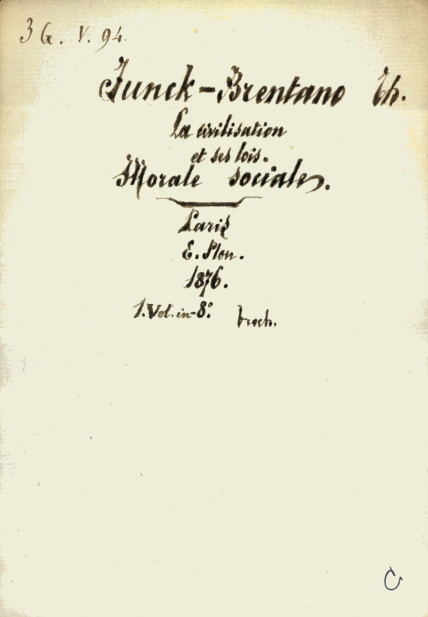 3 G. V. 94.
Funck-Brentano Th.
La civilisation
et ses lois.
Morale sociale.
Paris
E. Plon.
1876.
1. Vol. in-8.° broch.
C